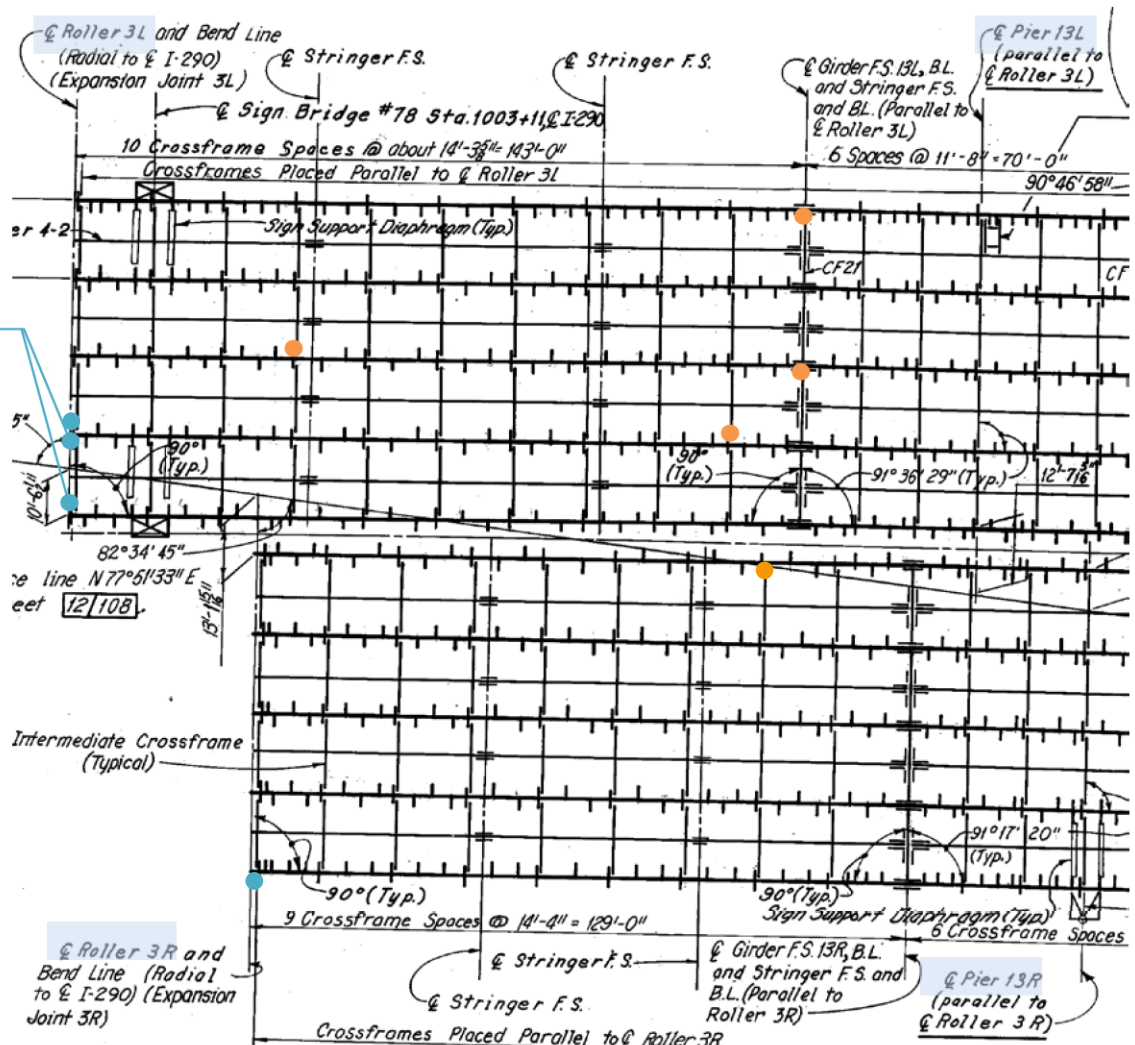 ℄ Roller 3L and Bend Line
(Radial to ℄ I-290)
(Expansion Joint 3L)
℄ Stringer F.S.
℄ Stringer F.S.
℄ Sign Bridge #78 Sta. 1003+11, ℄ I-290
℄ Girder F.S. 13L, B.L.
and Stringer F.S.
and B.L. (Parallel to
℄ Roller 3L)
℄ Pier 13L
(parallel to
℄ Roller 3L)
10 Crossframe Spaces @ about 14'-3⅝" = 143'-0"
6 Spaces @ 11'-8" = 70'-0"
Crossframes Placed Parallel to ℄ Roller 3L
90°46'58"
er 4-2
Sign Support Diaphragm (Typ.)
CF21
CF
5"
90°
(Typ.)
90°
(Typ.)
91°36'29" (Typ.)
12'-7 5/16"
10'-6½"
82°34'45"
ce line N77°51'33" E
eet 12/108.
13'-1 15/16"
Intermediate Crossframe
(Typical)
91°17'20"
(Typ.)
90° (Typ.)
90° (Typ.)
Sign Support Diaphragm (Typ)
9 Crossframe Spaces @ 14'-4" = 129'-0"
6 Crossframe Spaces
℄ Roller 3R and
Bend Line (Radial
to ℄ I-290) (Expansion
Joint 3R)
℄ Stringer F.S.
℄ Stringer F.S.
℄ Girder F.S. 13R, B.L.
and Stringer F.S. and
B.L. (Parallel to
Roller 3R)
℄ Pier 13R
(parallel to
℄ Roller 3R)
Crossframes Placed Parallel to ℄ Roller 3R